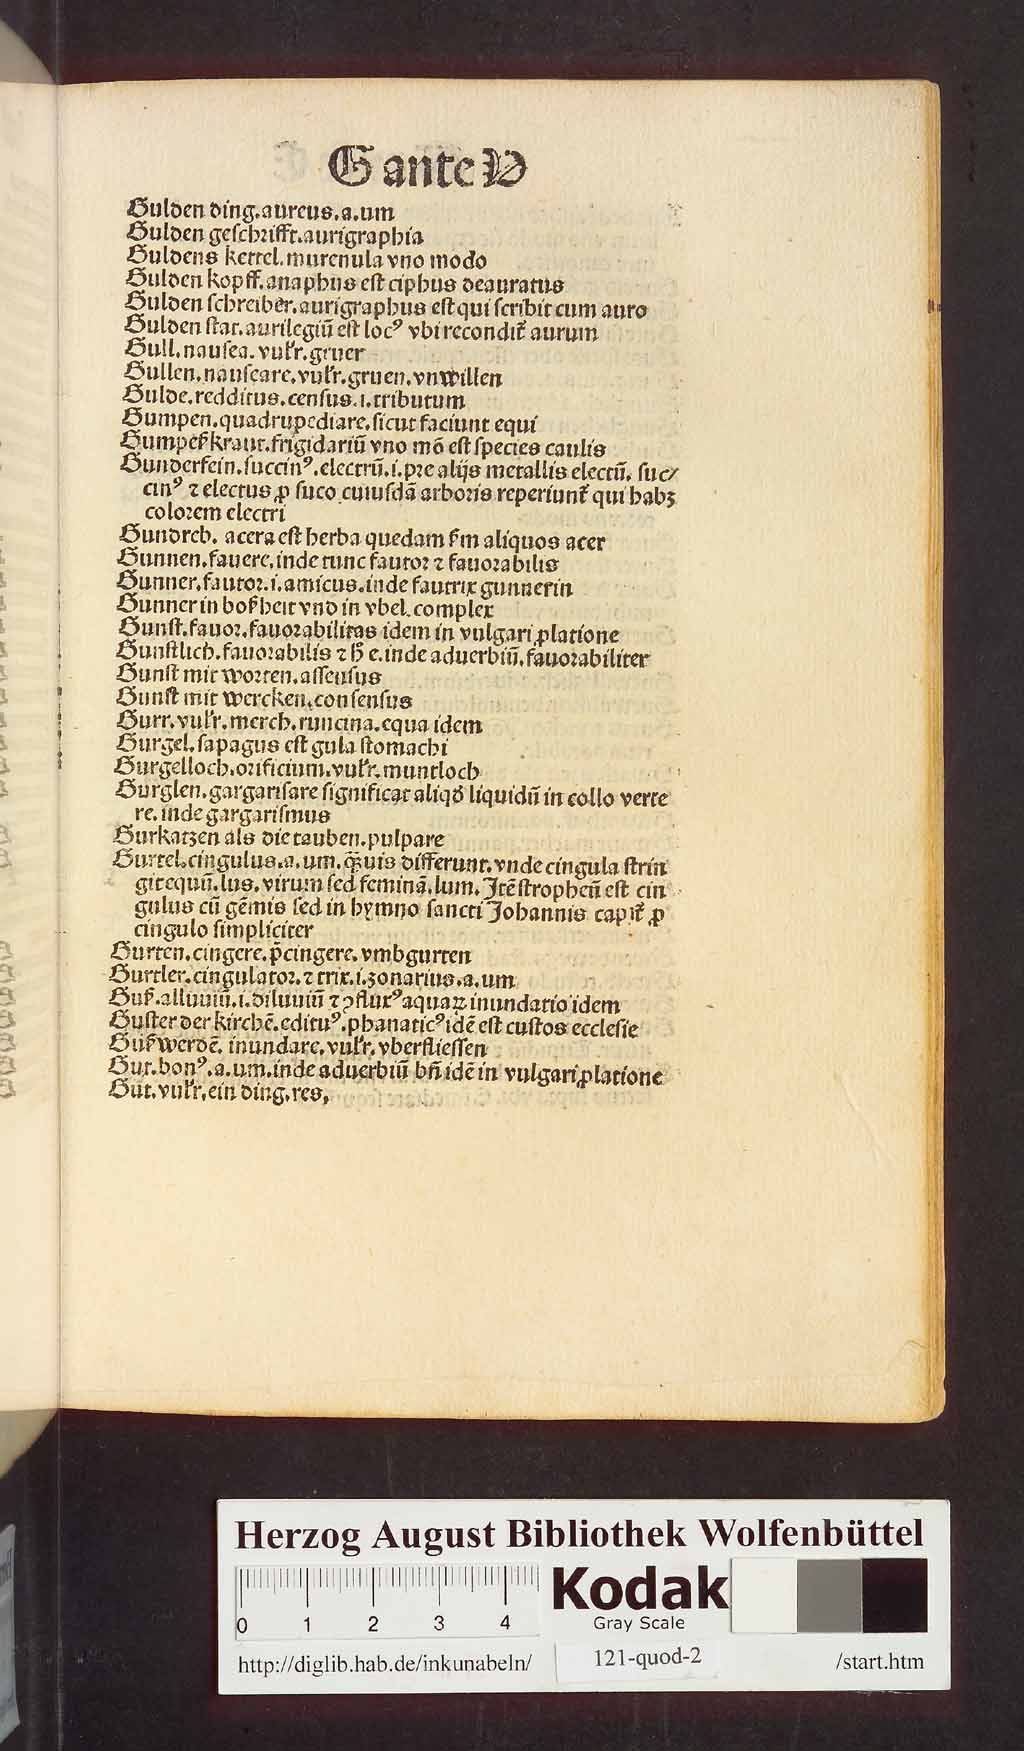 G ante V
Gulden ding. aureus. a. um
Gulden geschrifft. aurigraphia
Guldens kettel. murenula vno modo
Gulden kopff. anaphus est ciphus deauratus
Gulden schreiber. aurigraphus est qui scribit cum auro
Gulden stat. aurilegiū est locꝰ vbi recondit᷑ aurum
Gull. nausea. vulr. gruer
Gullen. nauseare. vulr. gruen. vnwillen
Gulde. redditus. census. i. tributum
Gumpen. quadrupediare. sicut faciunt equi
Gumpeß kraut. frigidariū vno mō est species caulis
Gunderfein. succinꝰ. electrū. i. pre alijs metallis electū. suc/
cinꝰ ⁊ electus ꝓ suco cuiusdā arboris reperiunt᷑ qui habꝫ
colorem electri
Gundreb. acera est herba quedam ẜm aliquos acer
Gunnen. fauere. inde tunc fautor ⁊ fauorabilis
Gunner. fautor. i. amicus. inde fautrix gunnerin
Gunner in boßheit vnd in vbel. complex
Gunst. fauor. fauorabilitas idem in vulgari ꝓlatione
Gunstlich. fauorabilis ⁊ h̄ e. inde aduerbiū. fauorabiliter
Gunst mit worten. assensus
Gunst mit wercken. consensus
Gurr. vulr. merch. runcina. equa idem
Gurgel. sapagus est gula stomachi
Gurgelloch. orificium. vulr. muntloch
Gurglen. gargarisare significat aliqd̄ liquidū in collo verte
re. inde gargarismus
Gurkatzen als die tauben. pulpare
Gurtel. cingulus. a. um. q̄uis differunt. vnde cingula strin
git equū. lus. virum sed feminā. lum. Itē stropheū est cin
gulus cū gēmis sed in hymno sancti Johannis capit᷑ ꝓ
cingulo simpliciter
Gurten. cingere. p̄cingere. vmbgurten
Gurtler. cingulator. ⁊ trix. i. zonarius. a. um
Guß. alluuiū. i. diluuiū ⁊ ꝯfluxꝰ aquaꝝ inundatio idem
Guster der kirchē. edituꝰ. phanaticꝰ idē est custos ecclesie
Guß werdē. inundare. vulr. vberfliessen
Gut. bonꝰ. a. um. inde aduerbiū bn̄ idē in vulgari ꝓlatione
Gut. vulr. ein ding. res,
Herzog August Bibliothek Wolfenbüttel
0 1 2 3 4
Kodak
Gray Scale
http://diglib.hab.de/inkunabeln/ 121-quod-2 /start.htm